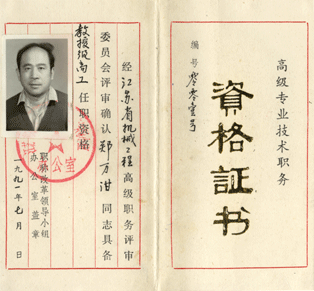 高级专业技术职务
资格证书
编号 零零壹号
经江苏省机械工程高级职务评审
委员会评审确认郑万泔同志具备
教授级高工任职资格
职称改革领导小组
办公室盖章
一九九一年七月 日
公室